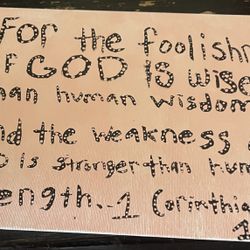 For the foolishn
F GOD IS wise
han human wisdom
nd the weakness
D is stronger than hum
ength. -1 Corinthia